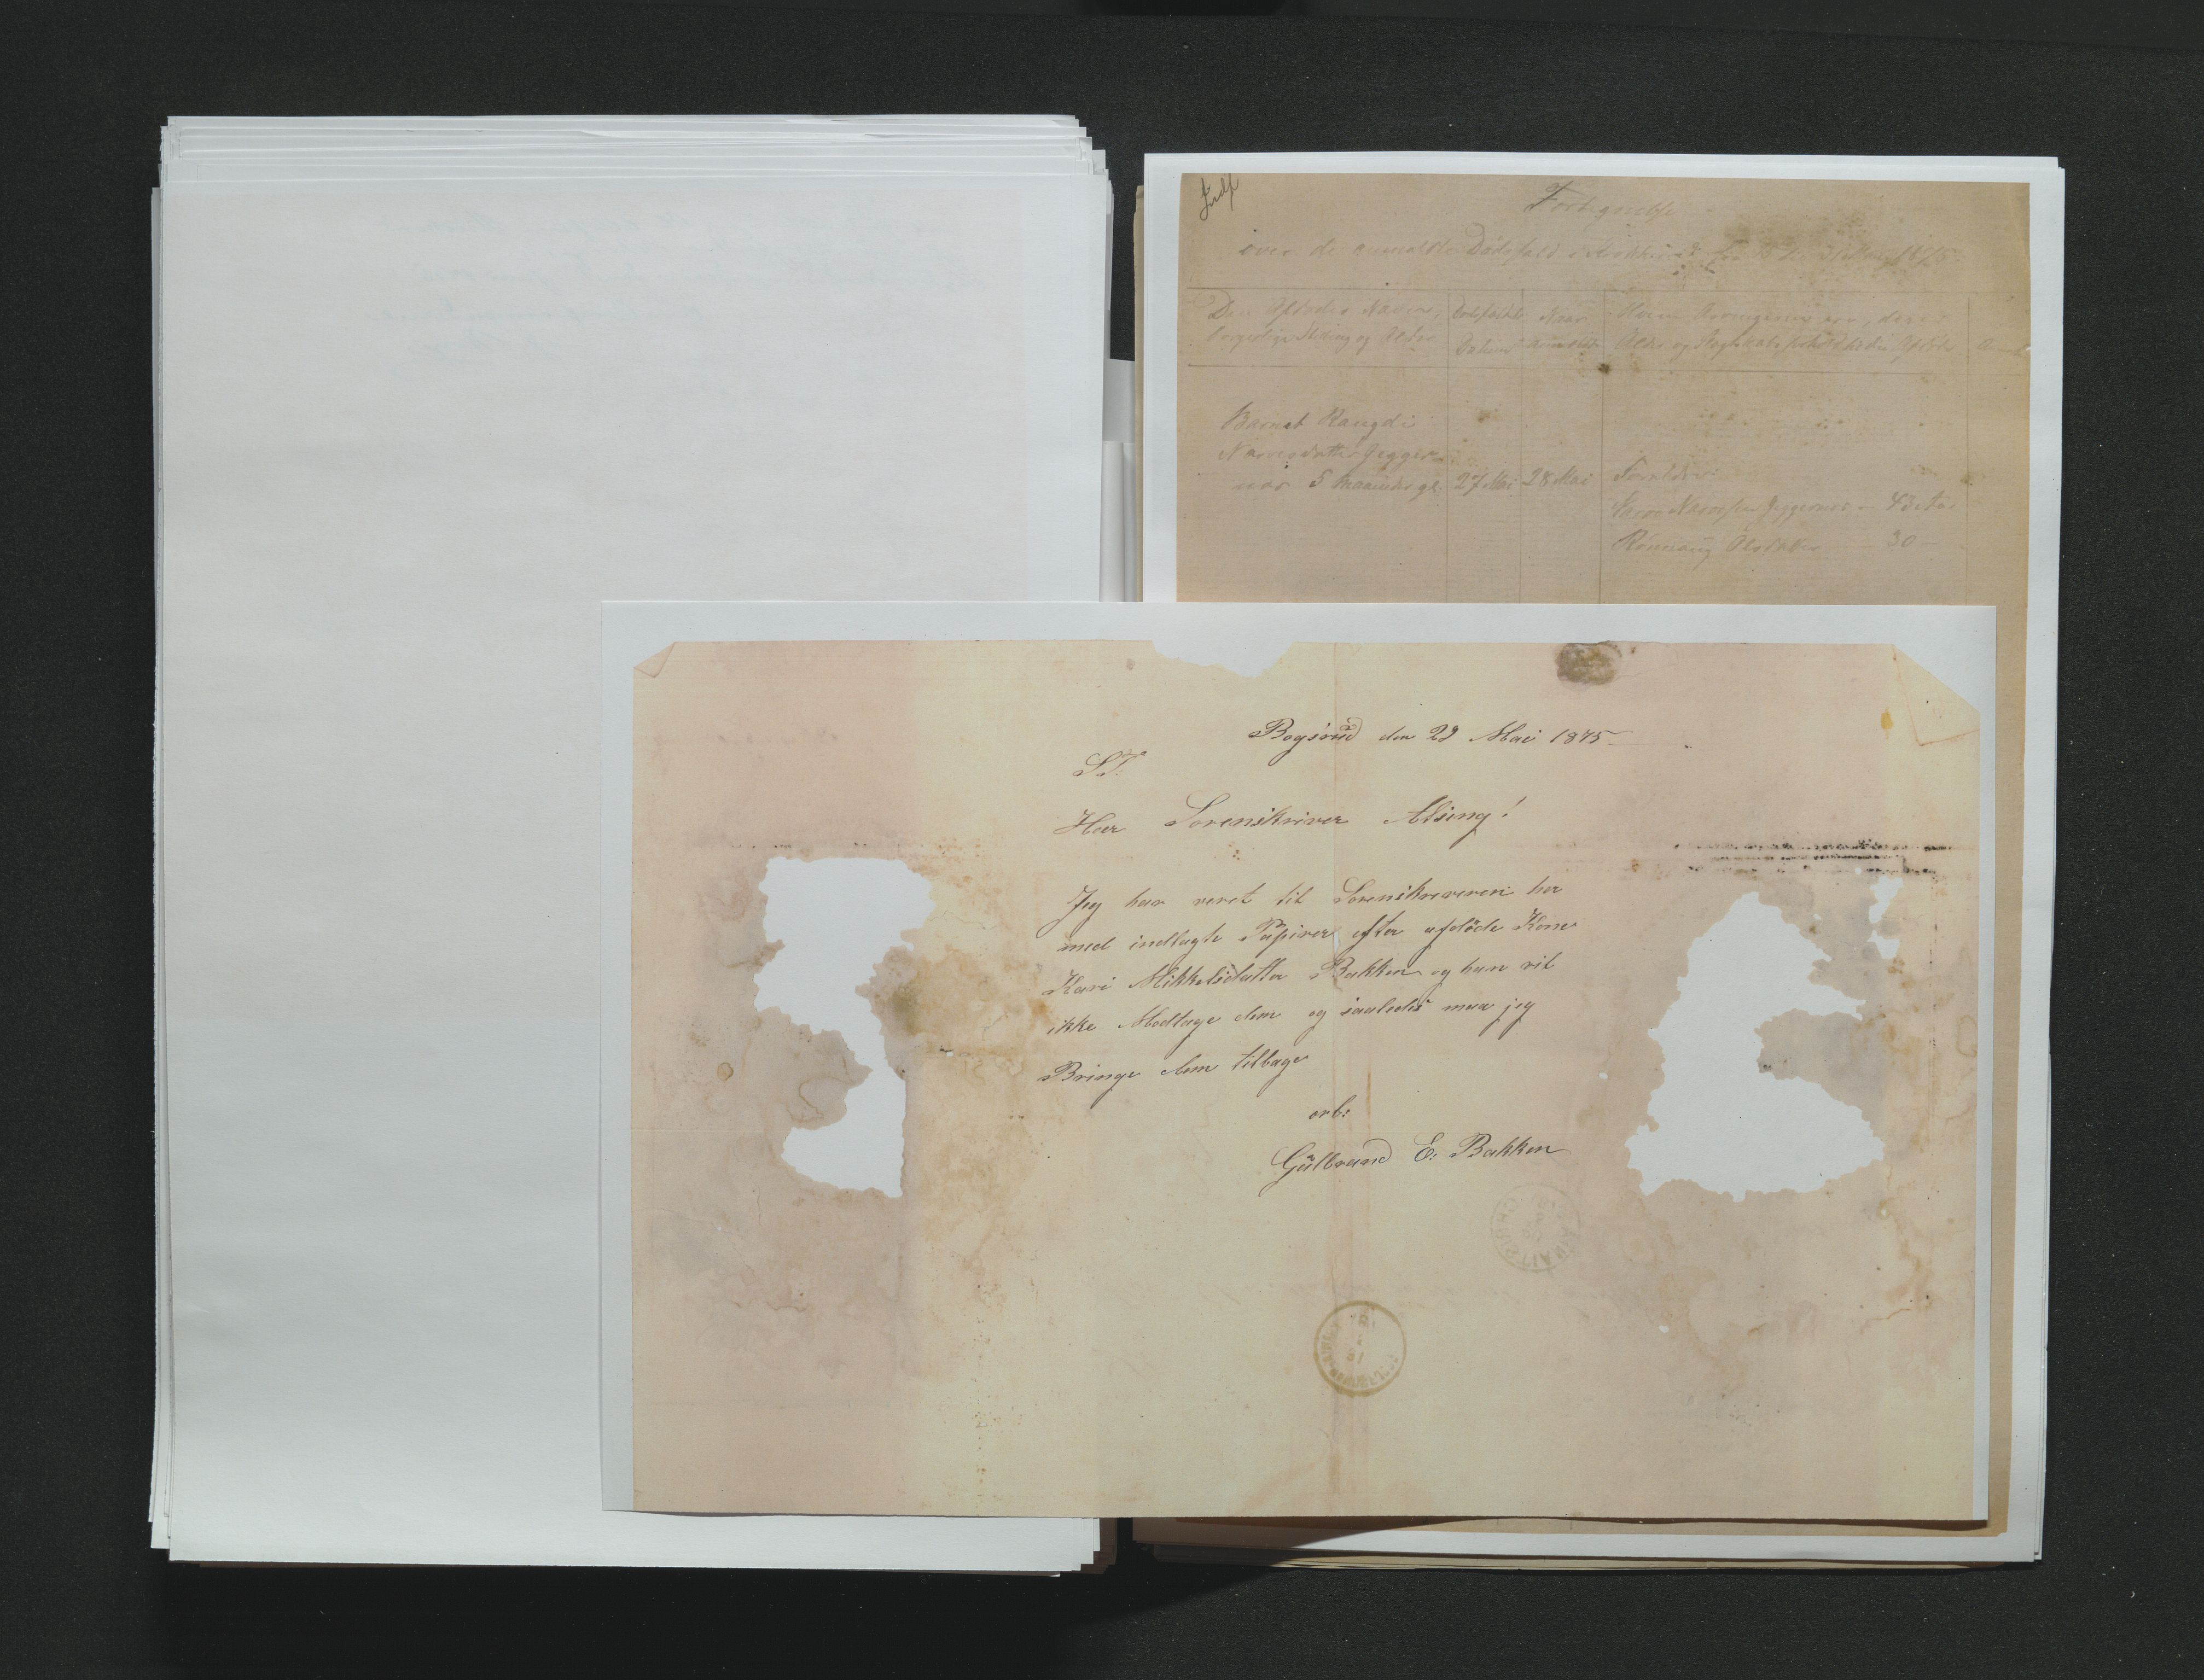 Indf
Fortegnelse
over de anmeldte Dødsfald i Krødsherred fra 1875
Den Afdødes Navn,
borgerlige Stilling og Alder
Dødsfaldets
Datum
Naar
anmeldt
Hvem Arvingerne ere, deres
Alder og Slægtskabsforhold til den Afdøde
Barnet Raugdi
Narvesdatter Jegger
næs 5 Maaneder gl.
27 Mai
28 Mai
Forældre:
Narve Narvesen Jeggernæs – 43 Aar
Rönnaug Olsdatter – 30 –
Bogsrüd den 29 Mai 1875
ST.
Herr Sorenskriver Alsing!
Jeg har veret til Sorenskriveren her
med indlagte Papirer efter afdöde Kone
Kari Mikkelsdatter Bakken og han vil
ikke Modtage dem og saaledes maa jeg
Bringe dem tilbage
erb:
Gülbrand E: Bakken